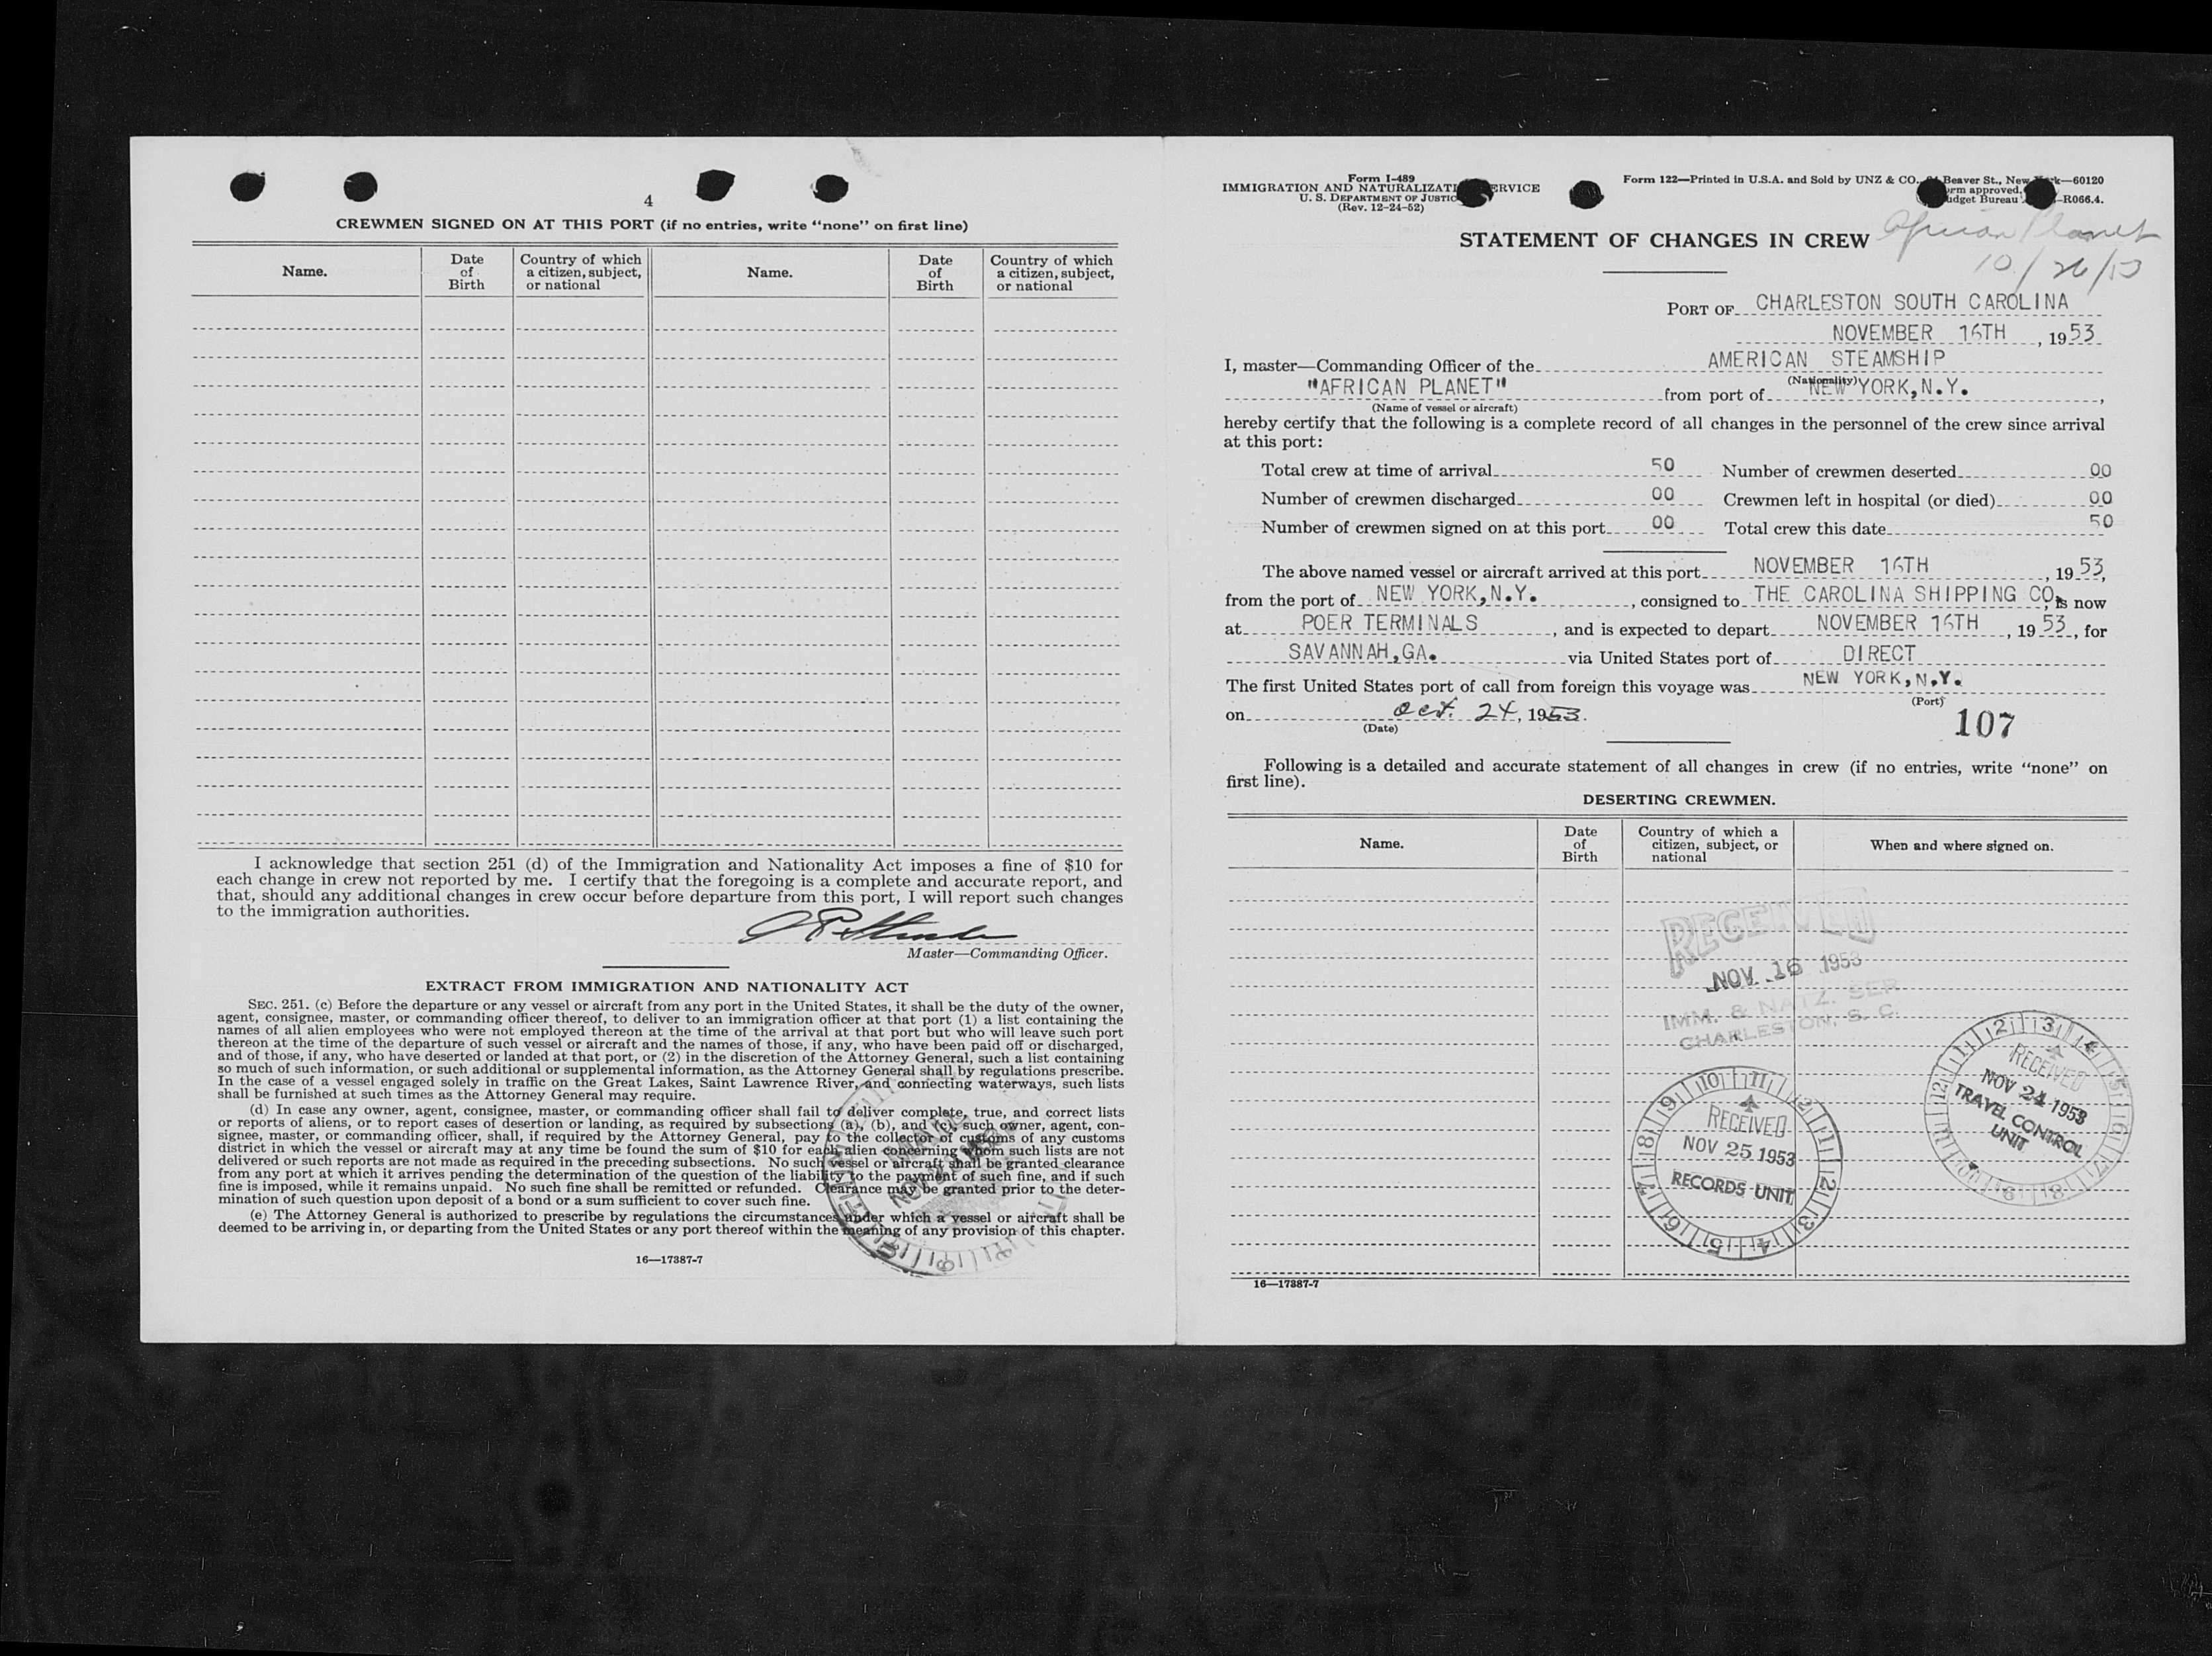 4
CREWMEN SIGNED ON AT THIS PORT (if no entries, write "none" on first line)
Name.
Date of Birth
Country of which a citizen, subject, or national
Name.
Date of Birth
Country of which a citizen, subject, or national
I acknowledge that section 251 (d) of the Immigration and Nationality Act imposes a fine of $10 for
each change in crew not reported by me. I certify that the foregoing is a complete and accurate report, and
that, should any additional changes in crew occur before departure from this port, I will report such changes
to the immigration authorities.
Master—Commanding Officer.
EXTRACT FROM IMMIGRATION AND NATIONALITY ACT
SEC. 251. (c) Before the departure or any vessel or aircraft from any port in the United States, it shall be the duty of the owner,
agent, consignee, master, or commanding officer thereof, to deliver to an immigration officer at that port (1) a list containing the
names of all alien employees who were not employed thereon at the time of the arrival at that port but who will leave such port
thereon at the time of the departure of such vessel or aircraft and the names of those, if any, who have been paid off or discharged,
and of those, if any, who have deserted or landed at that port, or (2) in the discretion of the Attorney General, such a list containing
so much of such information, or such additional or supplemental information, as the Attorney General shall by regulations prescribe.
In the case of a vessel engaged solely in traffic on the Great Lakes, Saint Lawrence River, and connecting waterways, such lists
shall be furnished at such times as the Attorney General may require.
(d) In case any owner, agent, consignee, master, or commanding officer shall fail to deliver complete, true, and correct lists
or reports of aliens, or to report cases of desertion or landing, as required by subsections (a), (b), and (c), such owner, agent, con-
signee, master, or commanding officer, shall, if required by the Attorney General, pay to the collector of customs of any customs
district in which the vessel or aircraft may at any time be found the sum of $10 for each alien concerning whom such lists are not
delivered or such reports are not made as required in the preceding subsections. No such vessel or aircraft shall be granted clearance
from any port at which it arrives pending the determination of the question of the liability to the payment of such fine, and if such
fine is imposed, while it remains unpaid. No such fine shall be remitted or refunded. Clearance may be granted prior to the deter-
mination of such question upon deposit of a bond or a sum sufficient to cover such fine.
(e) The Attorney General is authorized to prescribe by regulations the circumstances under which a vessel or aircraft shall be
deemed to be arriving in, or departing from the United States or any port thereof within the meaning of any provision of this chapter.
16—17387-7
Form I-489
IMMIGRATION AND NATURALIZATI ERVICE
U. S. DEPARTMENT OF JUSTIC
(Rev. 12-24-52)
Form 122—Printed in U.S.A. and Sold by UNZ & CO., Beaver St., New k—60120
rm approved.
udget Bureau -R066.4.
African Planet
10/26/53
STATEMENT OF CHANGES IN CREW
PORT OF CHARLESTON SOUTH CAROLINA
NOVEMBER 16TH, 1953
I, master—Commanding Officer of the AMERICAN STEAMSHIP
(Nationality)
"AFRICAN PLANET" from port of NEW YORK,N.Y.,
(Name of vessel or aircraft)
hereby certify that the following is a complete record of all changes in the personnel of the crew since arrival
at this port:
Total crew at time of arrival 50 Number of crewmen deserted 00
Number of crewmen discharged 00 Crewmen left in hospital (or died) 00
Number of crewmen signed on at this port 00 Total crew this date 50
The above named vessel or aircraft arrived at this port NOVEMBER 16TH, 1953,
from the port of NEW YORK,N.Y., consigned to THE CAROLINA SHIPPING CO., is now
at POER TERMINALS, and is expected to depart NOVEMBER 16TH, 1953, for
SAVANNAH,GA. via United States port of DIRECT
The first United States port of call from foreign this voyage was NEW YORK,N.Y.
(Port)
on Oct. 24, 1953.
(Date)
107
Following is a detailed and accurate statement of all changes in crew (if no entries, write "none" on
first line).
DESERTING CREWMEN.
Name.
Date of Birth
Country of which a citizen, subject, or national
When and where signed on.
RECEIVED
NOV 16 1953
IMM. & NATZ. SER
CHARLESTON, S. C.
RECEIVED
NOV 24 1953
TRAVEL CONTROL
UNIT
RECEIVED
NOV 25 1953
RECORDS UNIT
16—17387-7